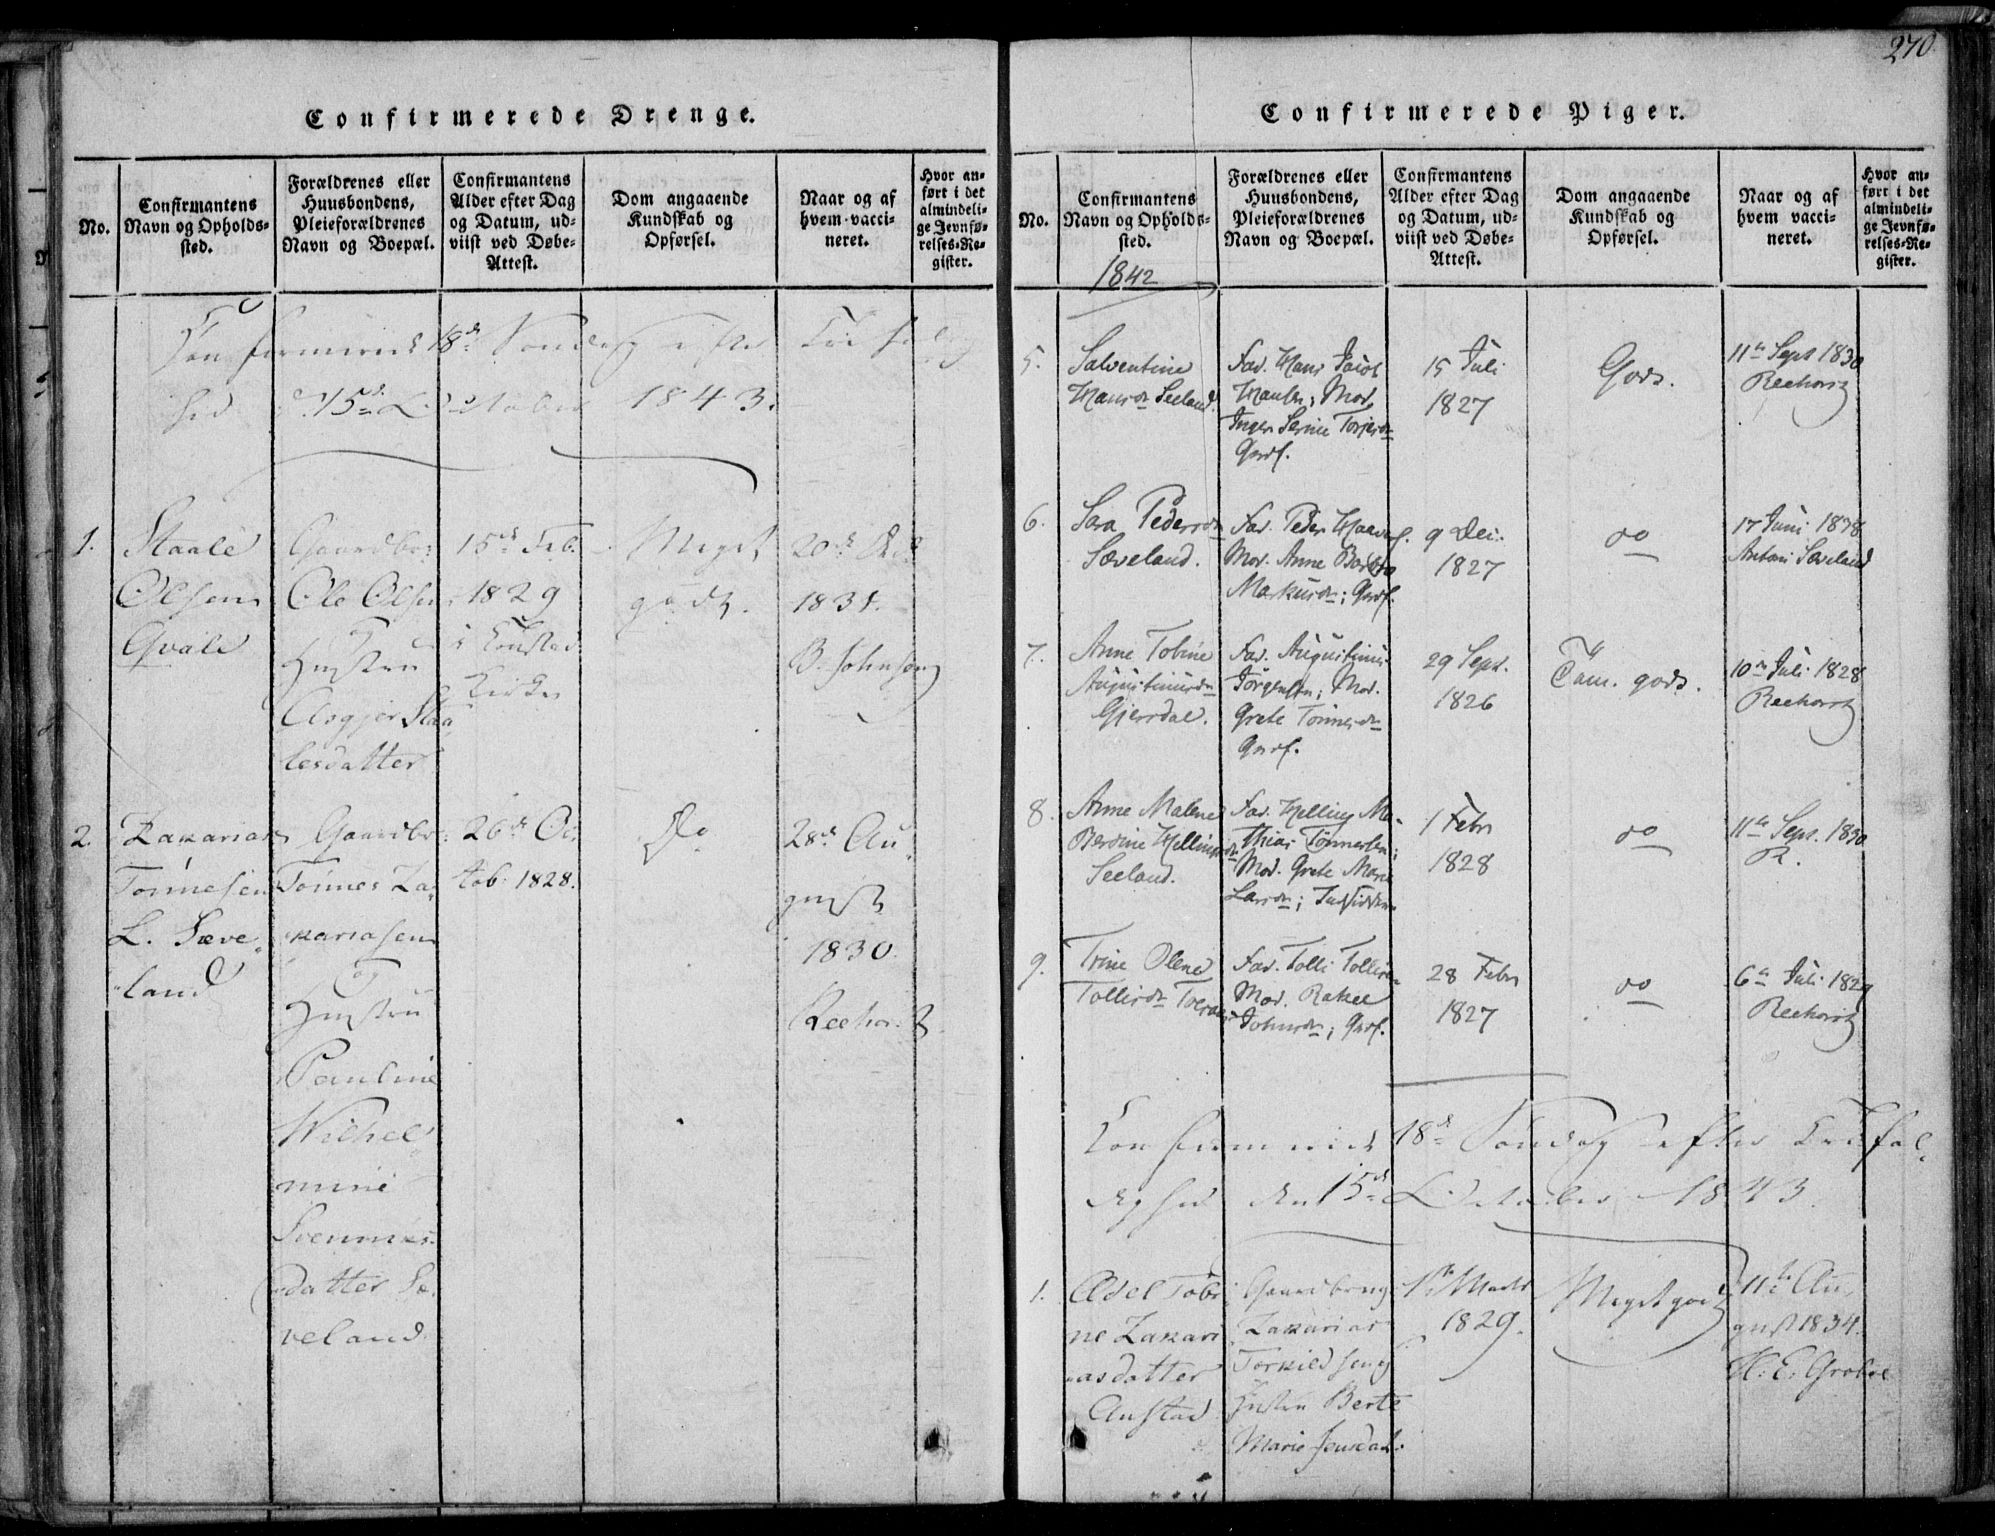 270.
Confirmerede Drenge.
No.
Confirmantens
Navn og Opholds-
sted.
Forældrenes eller
Huusbondens,
Pleieforældrenes
Navn og Boepæl.
Confirmantens
Alder efter Dag
og Datum, ud-
viist ved Døbe-
Attest.
Dom angaaende
Kundskab og
Opførsel.
Naar og af
hvem vacci-
neret.
Hvor an-
ført i det
almindeli-
ge Jevnfø-
relses-Re-
gister.
18de
15de October 1843.
1.
Staale
Olsen
Qvale
Gaardbr:
Ole Olsen
og
Hustru
Asgjer Staa
lesdatter
15de Feb.
1829
i
Kirke
Meget
godt.
20de
1831.
B. Johnsen
2.
Zakarias
Tønnesen
L. Sæve
land
Gaardbr:
Tønnes Za
kariasen
og
Hustru
Pauline
Wilhel
mine
datter Sæ
veland
26de Oc
tob. 1828.
Do
28de Au
gust
1830
Reehorst
Confirmerede Piger.
No.
Confirmantens
Navn og Opholds-
sted.
Forældrenes eller
Huusbondens,
Pleieforældrenes
Navn og Boepæl.
Confirmantens
Alder efter Dag
og Datum, ud-
viist ved Døbe-
Attest.
Dom angaaende
Kundskab og
Opførsel.
Naar og af
hvem vacci-
neret.
Hvor an-
ført i det
almindeli-
ge Jevnfø-
relses-Re-
gister.
1842
5.
Salventine
Hansdr Seeland.
Fad. Hans Jacob
Hansen; Mod.
Inger Serine
15 Juli
1827
Godt.
11te Sept 1830
Reehorst
6.
Sara Pedersdr
Sæveland.
Fad. Peder
Mod. Anne
Markusdr;
9 Dec.
1827
do
17 Juni 1838
Sæveland
7.
Anne Tobine
Augustinusdr
Gjersdal.
Fad. Augustinus
Jørgensen; Mod.
Grete Tønnesdr
29 Sept.
1826
Tem. godt.
10de Juli 1828
Reehorst
8.
Anne Malene
Berdine Hellingsdr
Seeland.
Fad. Helling Ma-
thias Tønnesen;
Mod. Grete Marie
Larsdr;
1 Febr
1828
do
11te Sept. 1830
R.
9.
Trine Olene
Tollisdr
Fad. Tolli
Mod. Rakel
28 Febr
1827
do
6te Juli 1829
Reehorst
Confirmerede 18de Søndag efter Trefol-
dighed den 15de October 1843.
1.
Adel Tobi
ne Zakari
asdatter
Austad
Gaardbrug
Zakarias
Torkildsen og
Hustru Berte
Marie Jensdat.
1ste Marts
1829.
Meget godt
11te Au
gust 1834.
H. E. Grobve